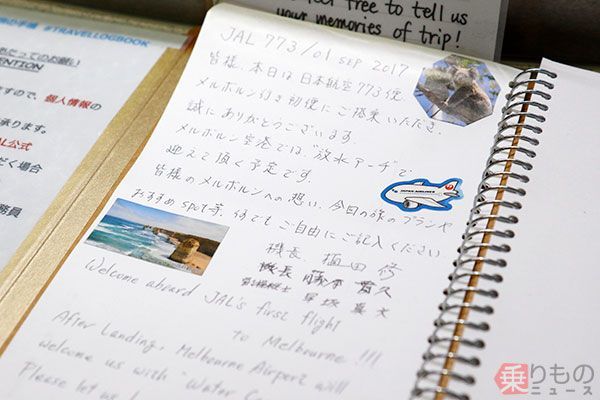 feel free to tell us
your memories of trip!
#TRAVELLOGBOOK
あたってのお願い
ENTION
すので、個人情報の
承ります。
AL公式
だく場合
務員
JAL 773/01 SEP 2017
皆様、本日は日本航空773便、
メルボルン行き初便にご搭乗いただき、
誠にありがとうございます。
メルボルン空港では"放水アーチ"で
迎えて頂く予定です。
皆様のメルボルンへの想い、今日の旅のプランや
おすすめspot等、何でもご自由にご記入ください
JAPAN AIRLINES
機長 植田 修
機長 藤本
Welcome aboard JAL's first flight
to Melbourne!!!
After Landing, Melbourne Airport will
welcome us with "Water
Please let us
乗りもの
ニュース